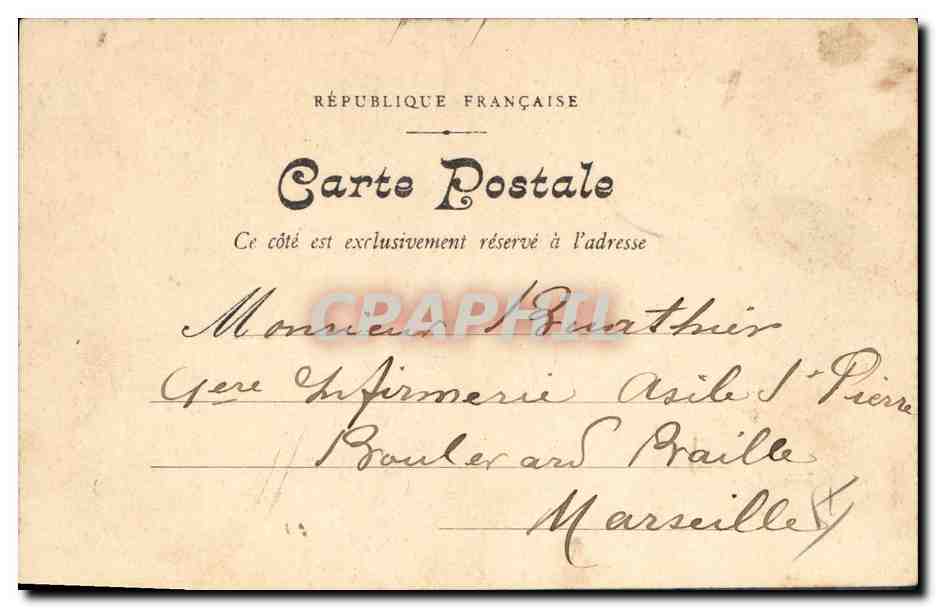 RÉPUBLIQUE FRANÇAISE
Carte Postale
Ce côté est exclusivement réservé à l'adresse
CPAPHIL
Monsieur Bruathier
Infirmerie Asile St Pierre
Boulevard Baille
Marseille